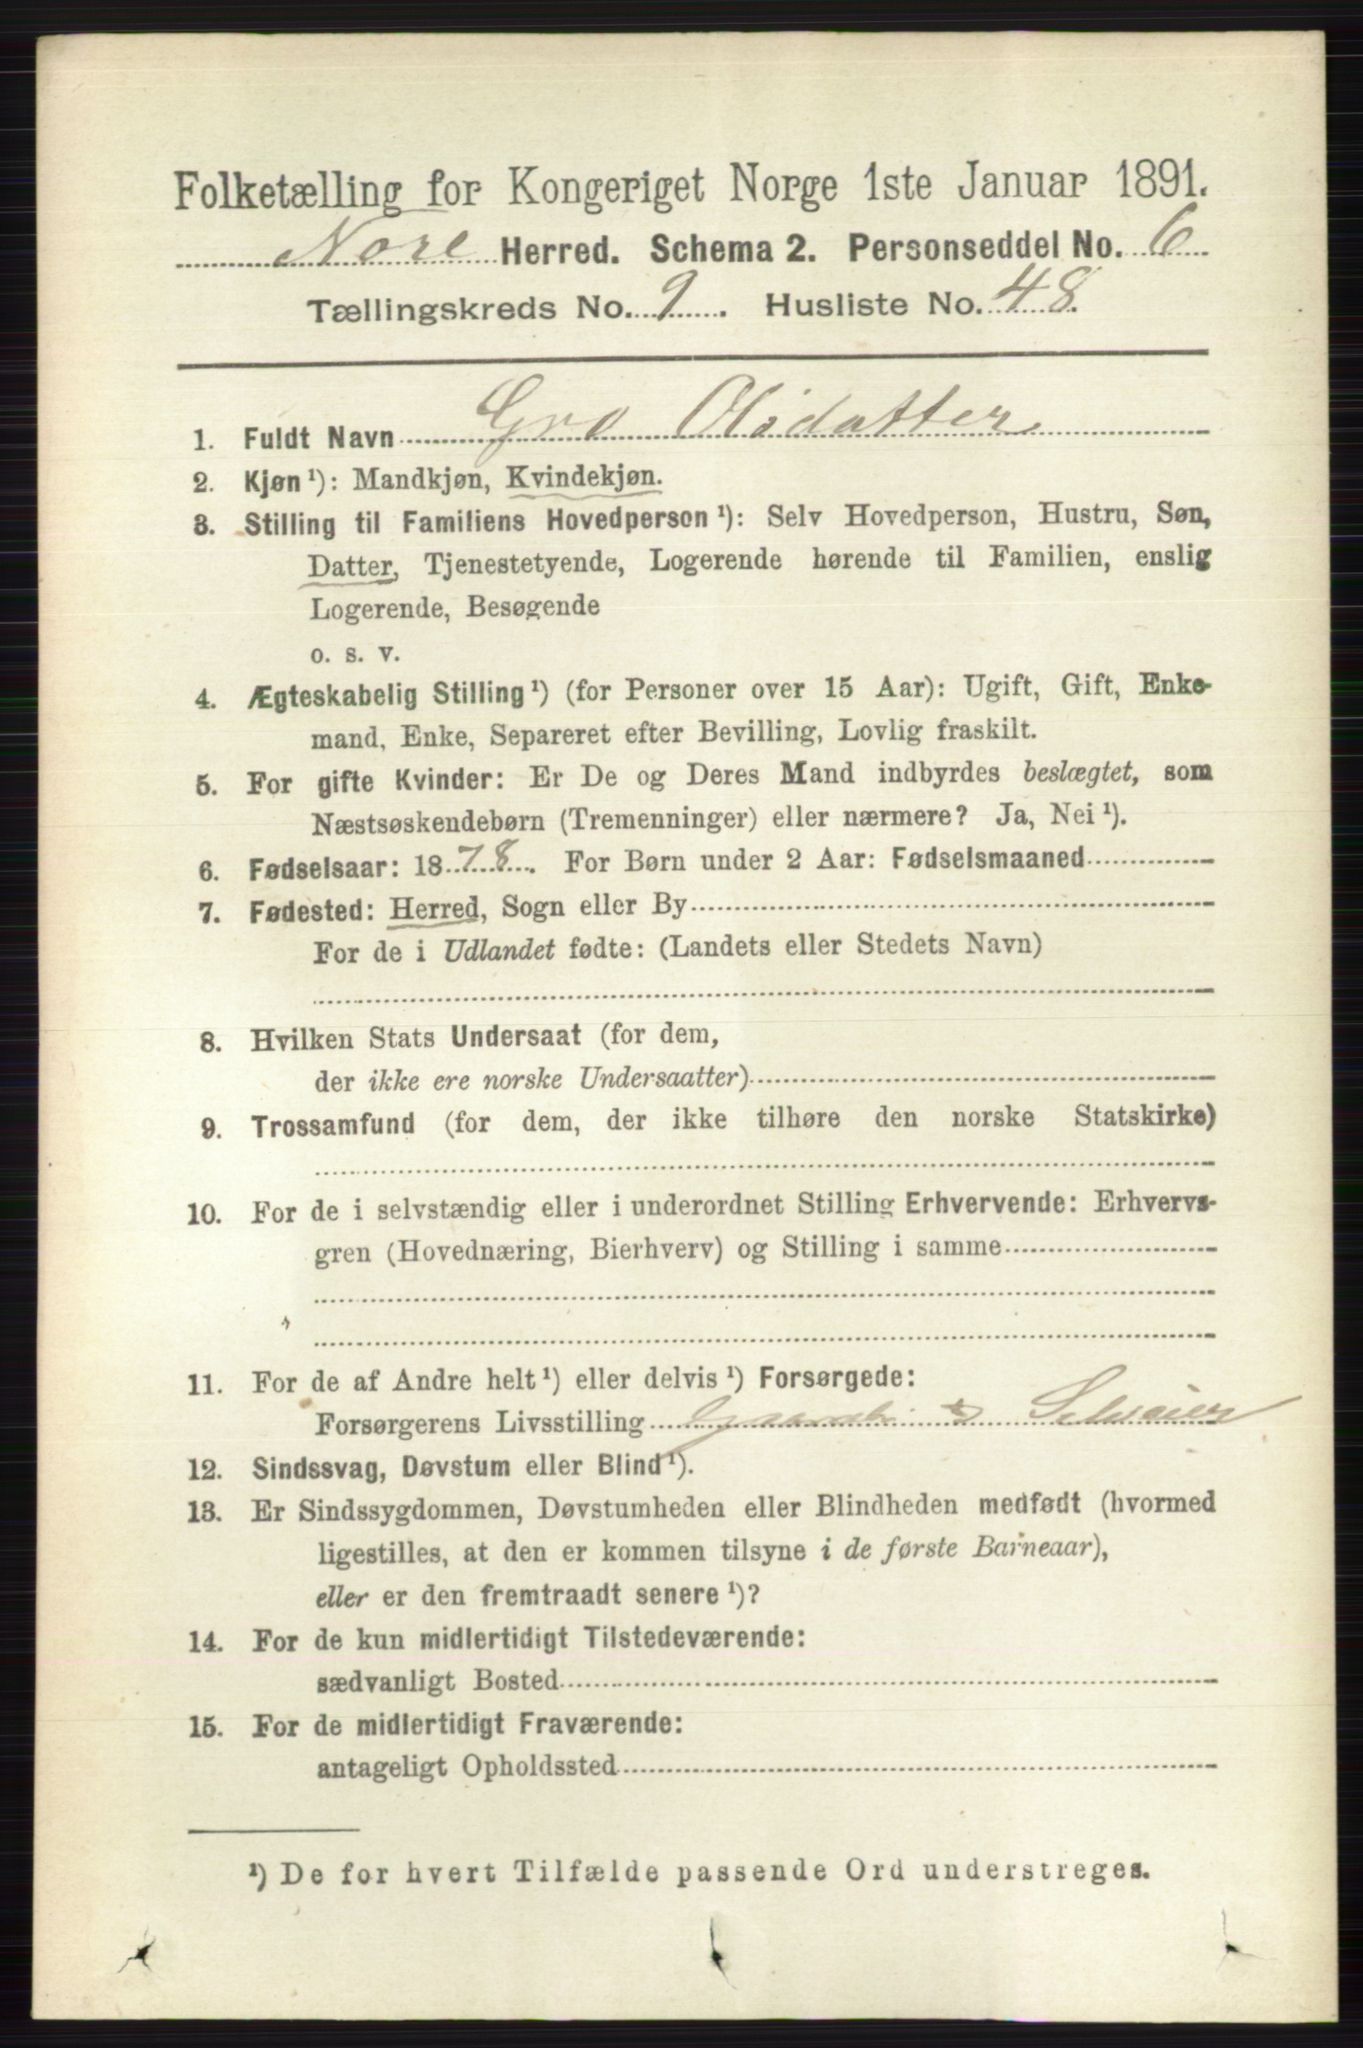 Folketælling for Kongeriget Norge 1ste Januar 1891.
Nore Herred. Schema 2. Personseddel No. 6
Tællingskreds No. 9. Husliste No. 48.
1. Fuldt Navn Gro Olsdatter
2. Kjøn¹): Mandkjøn, Kvindekjøn.
3. Stilling til Familiens Hovedperson¹): Selv Hovedperson, Hustru, Søn,
Datter, Tjenestetyende, Logerende hørende til Familien, enslig
Logerende, Besøgende
o. s. v.
4. Ægteskabelig Stilling¹) (for Personer over 15 Aar): Ugift, Gift, Enke-
mand, Enke, Separeret efter Bevilling, Lovlig fraskilt.
5. For gifte Kvinder: Er De og Deres Mand indbyrdes beslægtet, som
Næstsøskendebørn (Tremenninger) eller nærmere? Ja, Nei¹).
6. Fødselsaar: 1878. For Børn under 2 Aar: Fødselsmaaned
7. Fødested: Herred, Sogn eller By
For de i Udlandet fødte: (Landets eller Stedets Navn)
8. Hvilken Stats Undersaat (for dem,
der ikke ere norske Undersaatter)
9. Trossamfund (for dem, der ikke tilhøre den norske Statskirke)
10. For de i selvstændig eller i underordnet Stilling Erhvervende: Erhvervs-
gren (Hovednæring, Bierhverv) og Stilling i samme
11. For de af Andre helt¹) eller delvis¹) Forsørgede:
Forsørgerens Livsstilling Selveier
12. Sindssvag, Døvstum eller Blind¹).
13. Er Sindssygdommen, Døvstumheden eller Blindheden medfødt (hvormed
ligestilles, at den er kommen tilsyne i de første Barneaar),
eller er den fremtraadt senere¹)?
14. For de kun midlertidigt Tilstedeværende:
sædvanligt Bosted
15. For de midlertidigt Fraværende:
antageligt Opholdssted
¹) De for hvert Tilfælde passende Ord understreges.